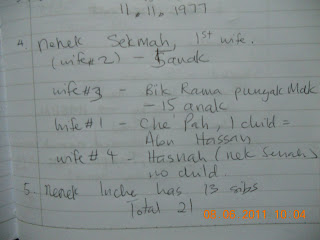 11.11.1977
4. Nenek Sekmah, 1st wife.
(wife #2) - 5 anak
wife #3 - Bik Rama punyak Mak
- 15 anak
Wife #1 - Che' Pah, 1 child =
Abu Hassan
wife #4 - Hasnah (nek Semah)
no child.
5. Nenek Inche has 13 sibs
Total 21